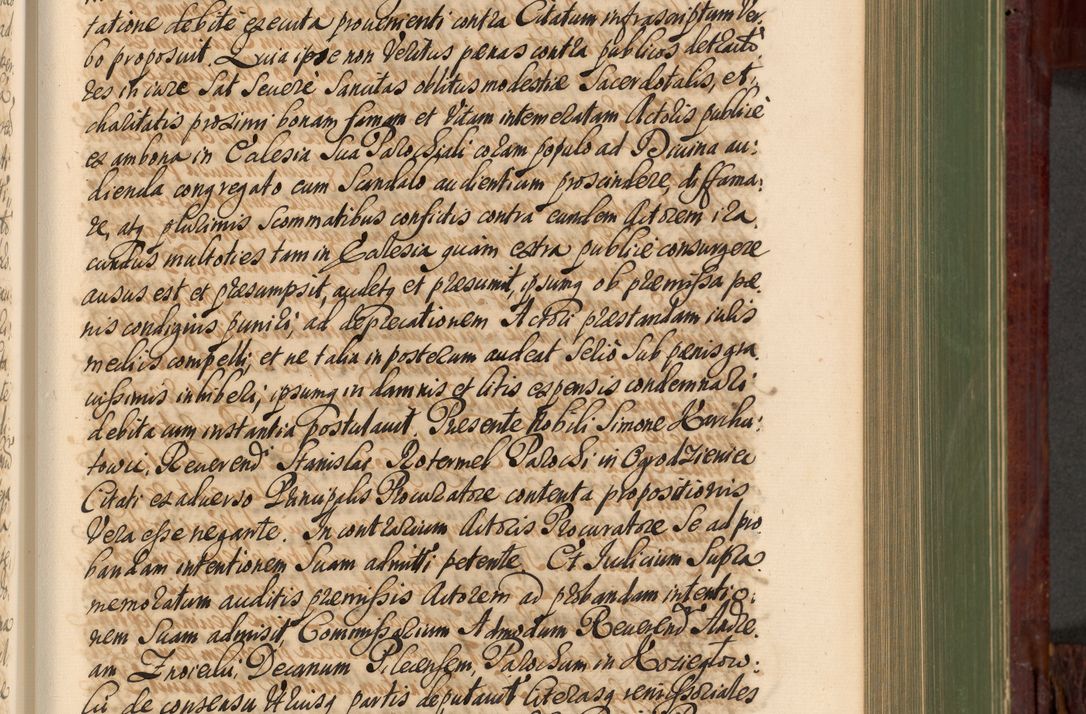 tatione debitè executa provenienti contra Citatum infrascriptum Ver-
bo proposuit. Quia ipse non Veritus pænas contra publicos detracto
res in iure Sat Severè Sancitas oblitus modestiæ Sacerdotalis, et
charitatis proximi bonam famam et Vitam intemeratam Actoris publicè
ex ambona in Ecclesia Sua Parochiali coram populo ad Divina au:
dienda congregato cum Scandalo audientium proscindere, diffama:
re, atq plurimis Scommatibus confictis contra eundem Actorem ira
cundus multoties tam in Ecclesia quàm extra publicè consurgere
ausus est et præsumpsit, audetq et præsumit, ipsumq ob præmissa pæ
nis condignis puniri, ad deprecationem Actori præstandam iuris
medijs compelli, et ne talia in posterum audeat Seriò Sub pænis gra
vissimis inhiberi, ipsumq in damnis et litis expensis condemnari
debita cum instantia postulavit. Presente Nobili Simone Karcha:
towic, Reverend Stanislai Rotermel Parochi in Ogrodzieniec
Citati ex adverso Principalis Procuratore contenta propositionis
Vera esse negante. In contrarium Actoris Procuratore Se ad pro
bandam intentionem Suam admitti petente. Et Iudicium Supra
memoratum auditis præmissis Actorem ad probandam intentio:
nem Suam admisit, Commissarium Admodum Reverend Andre
am Znoreki, Decanum Pilecensem, Parochum in Koziegłow:
ki de consensu Utriusq partis deputavit literasq remissoriales